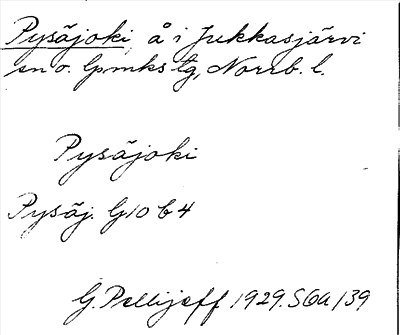 Pysäjoki, å i Jukkasjärvi
sn o. lpmks tg, Norrb. l.
Pysäjoki
Pysäj. G10 b 4
G. Pellijeff 1929. SOA/39